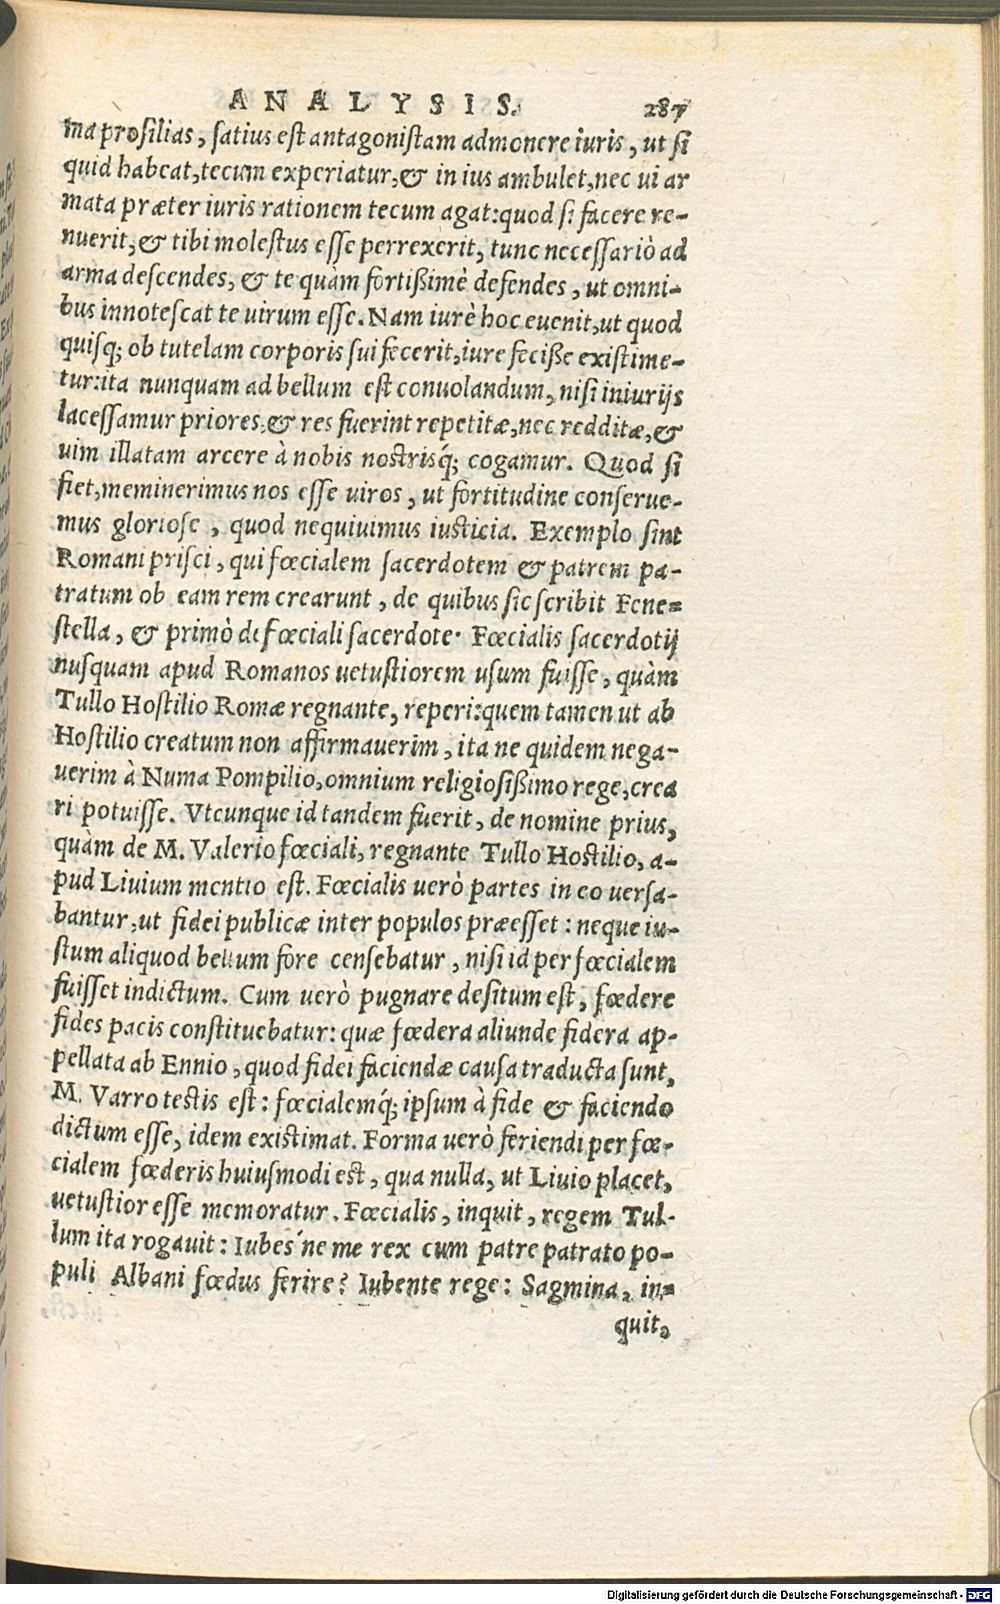 ANALYSIS. 287
ma prosilias, satius est antagonistam admonere iuris, ut si
quid habeat, tecum experiatur, & in ius ambulet, nec ui ar
mata præter iuris rationem tecum agat: quod si facere re-
nuerit, & tibi molestus esse perrexerit, tunc necessariò ad
arma descendes, & te quàm fortißimè defendes, ut omni-
bus innotescat te uirum esse. Nam iurè hoc euenit, ut quod
quisq; ob tutelam corporis sui fecerit, iure feciße existime-
tur: ita nunquam ad bellum est conuolandum, nisi iniurijs
lacessamur priores, & res fuerint repetitæ, nec redditæ, &
uim illatam arcere à nobis nostrisq́; cogamur. Quod si
fiet, meminerimus nos esse uiros, ut fortitudine conserue-
mus gloriose, quod nequiuimus iusticia. Exemplo sint
Romani prisci, qui fœcialem sacerdotem & patrem pa-
tratum ob eam rem crearunt, de quibus sic scribit Fene-
stella, & primò de fœciali sacerdote. Fœcialis sacerdotij
nusquam apud Romanos uetustiorem usum fuisse, quàm
Tullo Hostilio Romæ regnante, reperi: quem tamen ut ab
Hostilio creatum non affirmauerim, ita ne quidem nega-
uerim à Numa Pompilio, omnium religiosißimo rege, crea
ri potuisse. Vtcunque id tandem fuerit, de nomine prius,
quàm de M. Valerio fœciali, regnante Tullo Hostilio, a-
pud Liuium mentio est. Fœcialis uerò partes in eo uersa-
bantur, ut fidei publicæ inter populos præesset: neque iu-
stum aliquod bellum fore censebatur, nisi id per fœcialem
fuisset indictum. Cum uerò pugnare desitum est, fœdere
fides pacis constituebatur: quæ fœdera aliunde fidera ap-
pellata ab Ennio, quod fidei faciendæ causa traducta sunt,
M. Varro testis est: fœcialemq́; ipsum à fide & faciendo
dictum esse, idem existimat. Forma uerò feriendi per fœ-
cialem fœderis huiusmodi est, qua nulla, ut Liuio placet,
uetustior esse memoratur. Fœcialis, inquit, regem Tul-
lum ita rogauit: Iubes'ne me rex cum patre patrato po-
puli Albani fœdus ferire? Iubente rege: Sagmina, in-
quit,
Digitalisierung gefördert durch die Deutsche Forschungsgemeinschaft - DFG